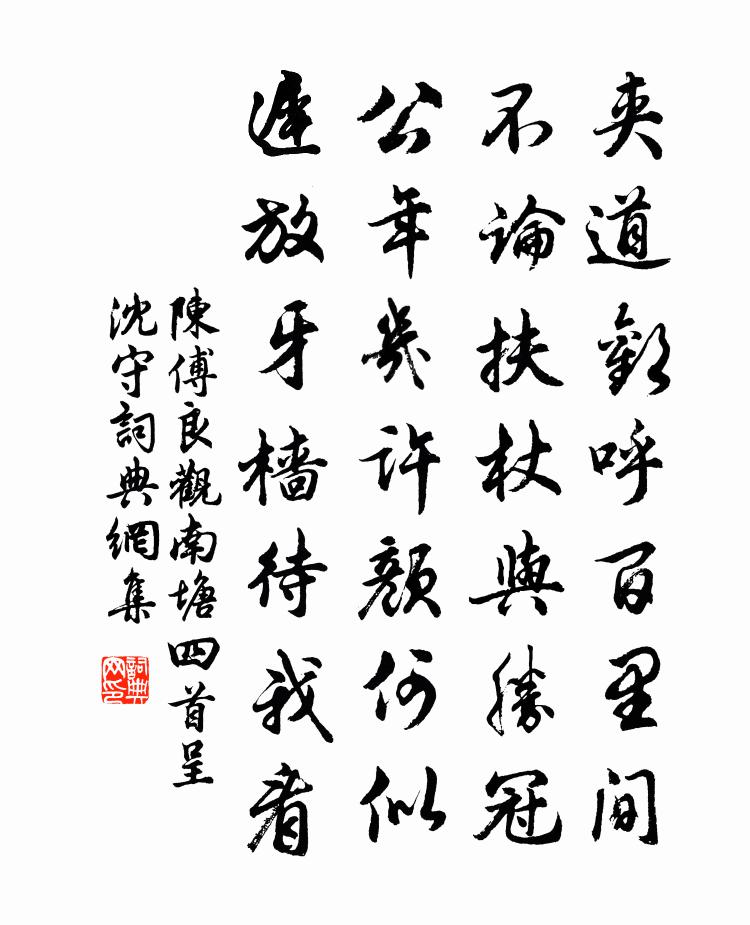 夹道歡呼百里间
不論扶杖與勝冠
公年幾許顏何似
遲放牙檣待我看
陳傅良觀南塘四首呈
沈守詞典網集
詞典网印